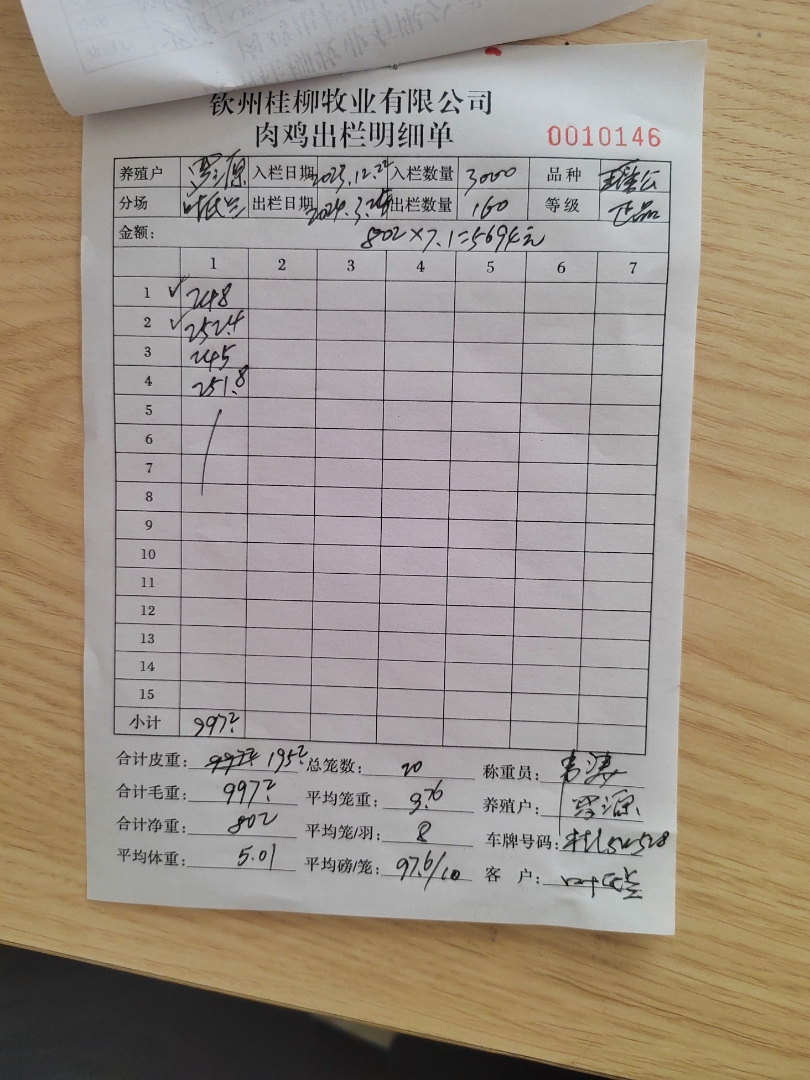 钦州桂柳牧业有限公司
肉鸡出栏明细单 0010146
养殖户 罗源 入栏日期 2023.12.22 入栏数量 3000 品种
分场 出栏日期 出栏数量 160 等级 正品
金额: 802×7.1=5694元
1 2 3 4 5 6 7
1 ✓ 248
2 ✓ 252.4
3 245
4 251.8
5
6
7
8
9
10
11
12
13
14
15
小计 997.2
合计皮重: 195.2 总笼数: 20 称重员:
合计毛重: 997.2 平均笼重: 9.76 养殖户: 罗源
合计净重: 802 平均笼/羽: 8 车牌号码:
平均体重: 5.01 平均磅/笼: 97.6/10 客户: